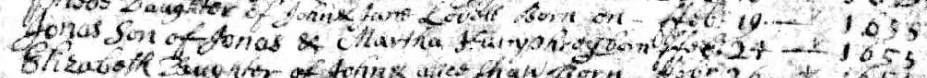 Daughter of John & Jane Lovell Born on - Feb: 19 — 1655
Jonas Son of Jonas & Martha Humphrey born Feb: 24 — 1655
Elizabeth Daughter of John & Alice Shaw Born Febr 26